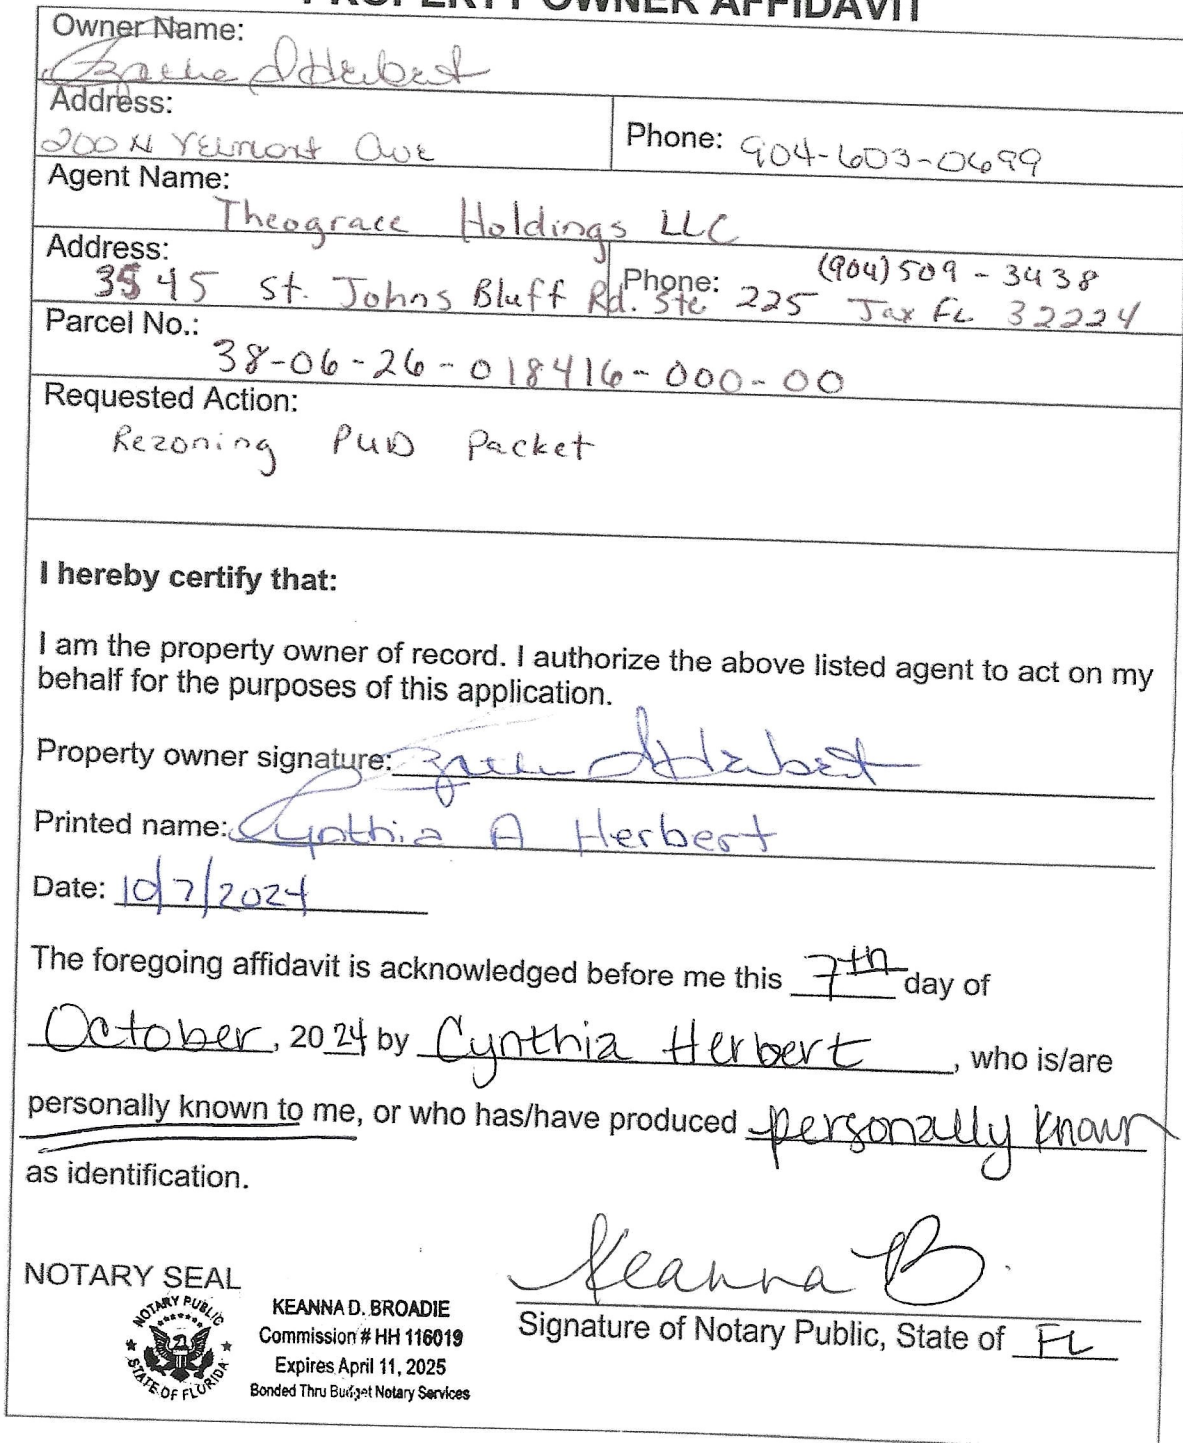 PROPERTY OWNER AFFIDAVIT
Owner Name:
Herbert
Address:
200 N Vermont Ave
Phone: 904-603-0699
Agent Name:
Theograce Holdings LLC
Address:
3545 St. Johns Bluff Rd. Ste 225 Jax FL 32224
Phone: (904) 509-3438
Parcel No.:
38-06-26-018416-000-00
Requested Action:
Rezoning PUD Packet
I hereby certify that:
I am the property owner of record. I authorize the above listed agent to act on my
behalf for the purposes of this application.
Property owner signature: Herbert
Printed name: Cynthia A Herbert
Date: 10/7/2024
The foregoing affidavit is acknowledged before me this 7th day of
October, 2024 by Cynthia Herbert, who is/are
personally known to me, or who has/have produced personally known
as identification.
Keanna B.
NOTARY SEAL
Signature of Notary Public, State of FL
NOTARY PUBLIC
STATE OF FLORIDA
KEANNA D. BROADIE
Commission # HH 116019
Expires April 11, 2025
Bonded Thru Budget Notary Services